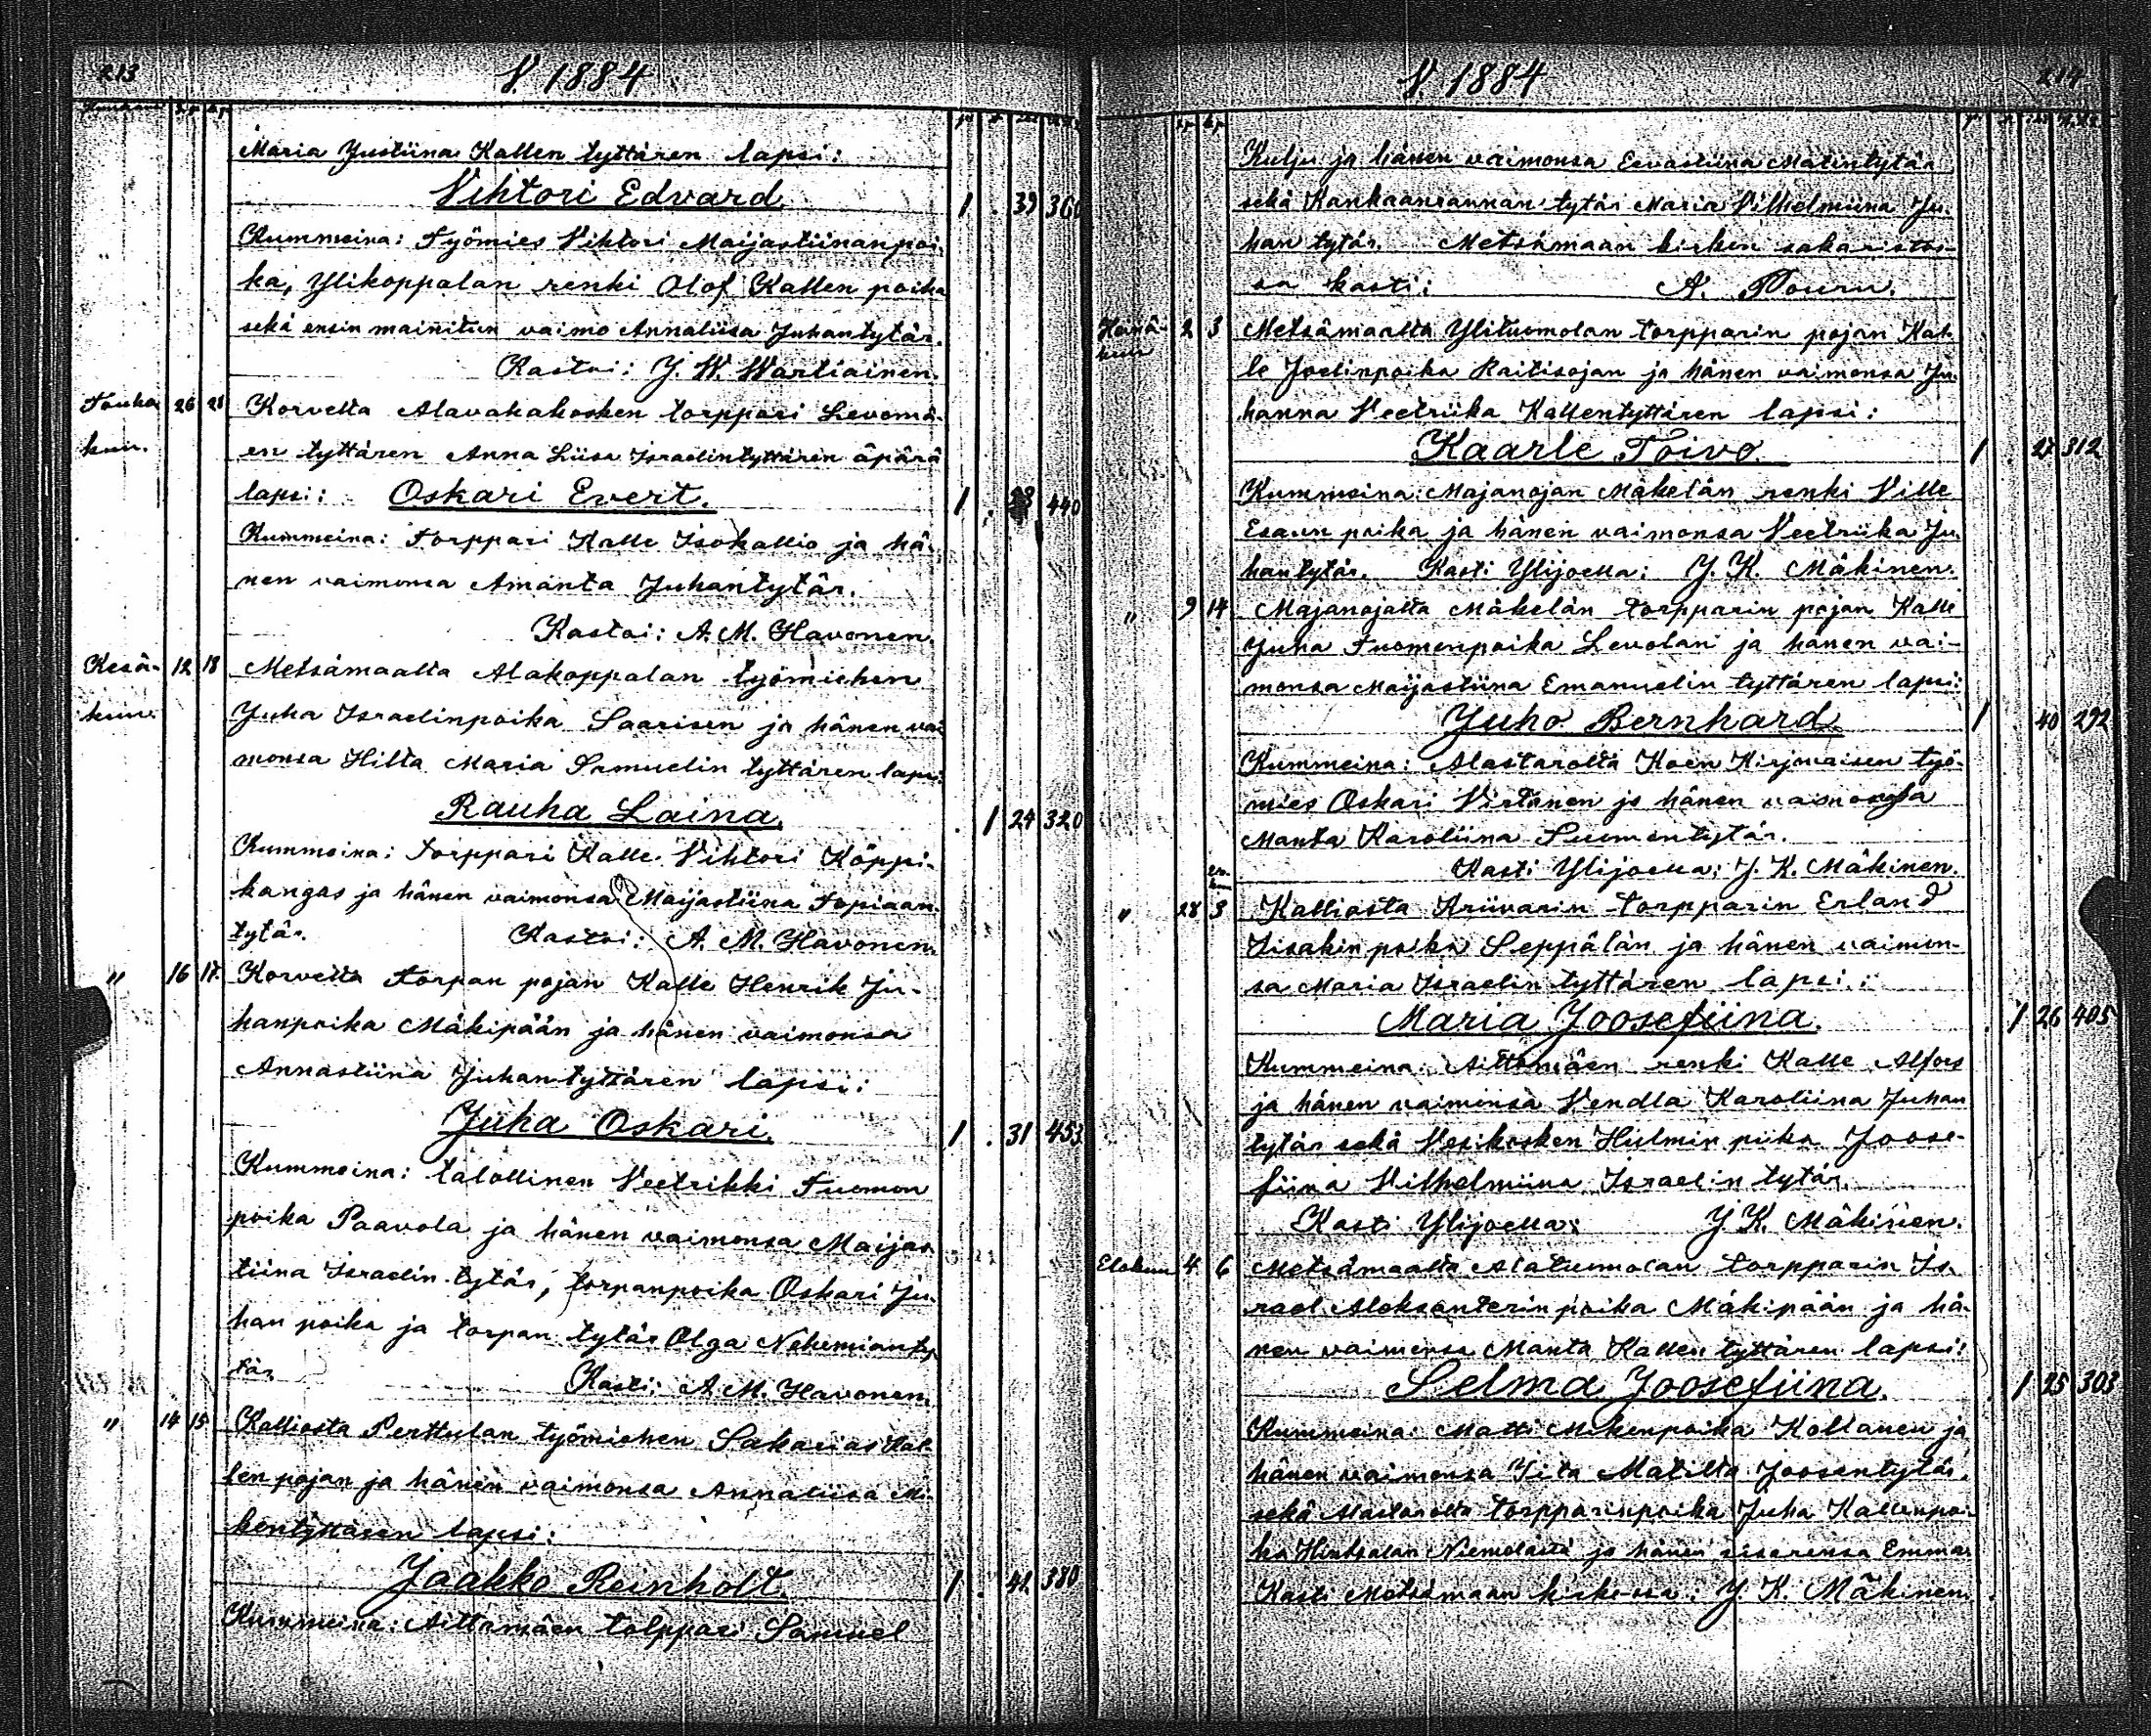 213
V 1884
Maria Justiina Kallen tyttären lapsi:
Vihtori Edvard. 1 . 39 360
Kummeina: Työmies Vihtori Maijastiinanpoi-
ka, Ylikoppalan renki Olof Kallen poika
sekä ensin mainitun vaimo Annaliisa Juhantytär.
Kastoi: J. W. Wartiainen.
Touko 26 28 Korvelta Alavakakosken torppari Levomä-
kuu. en tyttären Anna Liisa Israelintyttären äpärä
lapsi: Oskari Evert. 1 . 23 440
Kummeina: Torppari Kalle Isokallio ja hä-
nen vaimonsa Amanta Juhantytär.
Kastoi: A. M. Havonen.
Kesä- 12 18 Metsämaalta Alakoppalan työmiehen
kuu. Juha Israelinpoika Saarisen ja hänen vai
monsa Hilta Maria Samuelin tyttären lapsi:
Rauha Laina. . 1 24 320
Kummeina: Torppari Kalle Vihtori Köppi-
kangas ja hänen vaimonsa Maijastiina Topiaan-
tytär. Kastoi: A. M. Havonen.
" 16 17. Korvelta torpan pojan Kalle Henrik Ju-
hanpoika Mäkipään ja hänen vaimonsa
Annastiina Juhantyttären lapsi:
Juha Oskari. 1 . 31 453
Kummeina: talollinen Veetrikki Tuomon
poika Paavola ja hänen vaimonsa Maijas
tiina Israelin tytär, torpanpoika Oskari Ju-
han poika ja torpan tytär Olga Nehemianty
tär. Kasti: A. M. Havonen.
" 14 15 Kalliosta Perttulan työmiehen Sakarias Kal-
len pojan ja hänen vaimonsa Annaliisa Mi-
kentyttären lapsi:
Jaakko Reinholt. 1 . 41. 380
Kummeina: Aittamäen tolppari Samuel
V 1884
214
Kulju ja hänen vaimonsa Eevastiina Matintytär
sekä Kankaanrannan tytär Maria Vilhelmiina Ju-
han tytär. Metsämaan kirken sakaristos-
sa kasti: A. Pouru.
Heinä- 2 3 Metsämaalta Ylituomolan torpparin pojan Kal-
kuu le Joelinpoika Raitisojan ja hänen vaimonsa Ju-
hanna Veetriika Kallentyttären lapsi:
Kaarle Toivo. 1 . 27 312
Kummeina: Majanojan Mäkelän renki Ville
Esaun poika ja hänen vaimonsa Veetriika Ju-
hantytär. Kasti Ylijoella: J. K. Mäkinen.
" 9 14 Majanojalta Mäkelän torpparin pojan Kalle
Juha Tuomenpoika Levolan ja hänen vai-
monsa Maijastiina Emanuelin tyttären lapsi:
Juho Bernhard. 1 . 40 292
Kummeina: Alastarolta Koen Kirjmaisen työ-
mies Oskari Virtanen ja hänen vaimonsa
Manta Karoliina Tuomentytär.
Kasti Ylijoella: J. K. Mäkinen.
" 28 3 Kalliosta Ariivarin torpparin Erland
Iisakin poika Seppälän ja hänen vaimon-
sa Maria Israelin tyttären lapsi:
Maria Joosefiina. . 1 26 405
Kummeina: Aittamäen renki Kalle Alfors
ja hänen vaimonsa Vendla Karoliina Juhan
tytär sekä Vesikosken Hulmin piika Joose-
fiina Vilhelmiina Israelin tytär.
Kasti Ylijoella: J. K. Mäkinen.
Elokuu 4 6 Metsämaalta Alatuomolan torpparin Is-
rael Aleksanterin poika Mäkipään ja hä-
nen vaimonsa Manta Kallen tyttären lapsi:
Selma Joosefiina. . 1 25 303
Kummeina: Matti Mikenpoika Koltanen ja
hänen vaimonsa Iita Matilta Joosentytär,
sekä Alastarolta torpparinpoika Juha Kallenpoi-
ka Hintsalan Niemelästä ja hänen sisarensa Emma.
Kasti Metsämaan kirkossa: J. K. Mäkinen.